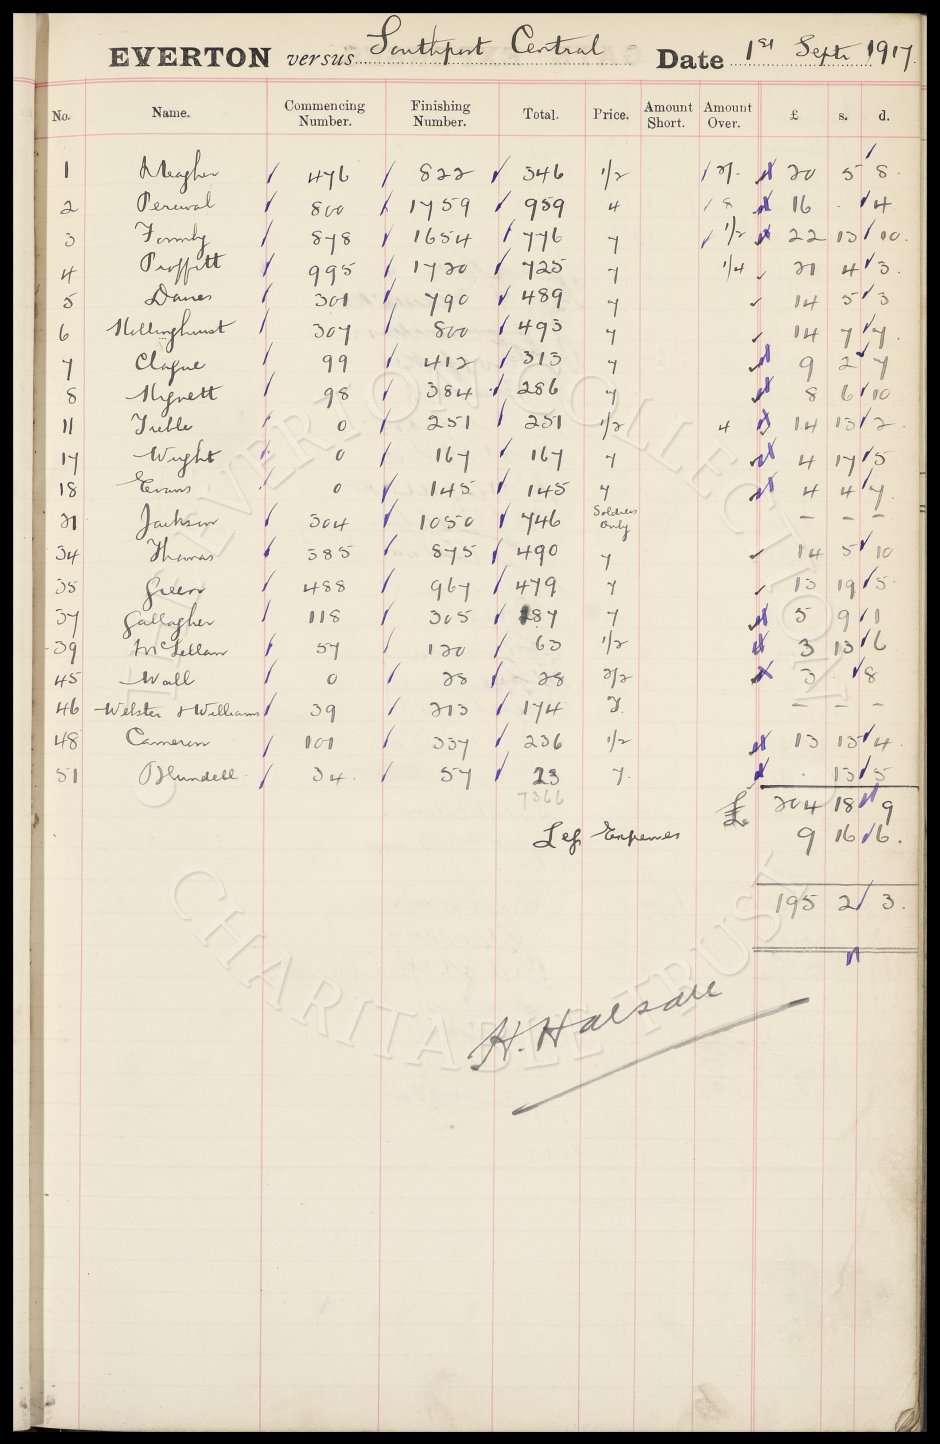 EVERTON versus Southport Central Date 1st Septr 1917.
No. Name. Commencing Number. Finishing Number. Total. Price. Amount Short. Amount Over. £ s. d.
1 Meagher 476 822 346 1/2 2/- 20 5 8.
2 Percival 800 1759 959 4 8 16 . 4
3 Formby 878 1654 776 7 1/2 22 13 10.
4 Proffitt 995 1720 725 7 1/4 21 4 3.
5 Davies 301 790 489 7 14 5 3
6 Hollinghurst 307 800 493 7 14 7 7.
7 Clague 99 412 313 7 9 2 7
8 Hignett 98 384 286 7 8 6 10
11 Treble 0 251 251 1/2 4 14 13 2.
17 Wright 0 167 167 7 4 17 5
18 Evans 0 145 145 7 4 4 7.
21 Jackson 304 1050 746 Soldiers Only – – –
34 Thomas 385 875 490 7 14 5 10
35 Green 488 967 479 7 13 19 5.
37 Gallagher 118 305 187 7 5 9 1
39 McLellan 57 120 63 1/2 3 13 6
45 Wall 0 28 28 2/2 3 . 8
46 Webster & Williams 39 213 174 2. – – –
48 Cameron 101 337 236 1/2 13 15 4.
51 Blundell 34. 57 23 7. . 13 5
7366 £ 204 18 9
Less Expenses 9 16 6.
195 2 3.
H. Halsall
THE EVERTON COLLECTION
CHARITABLE TRUST